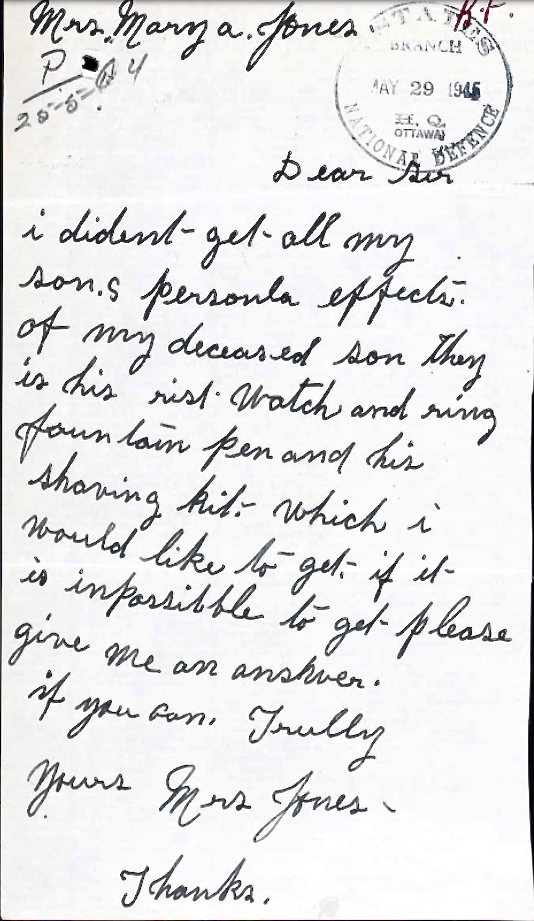 Mrs. Mary a. Jones
ESTATES
BRANCH
MAY 29 1945
H. Q.
OTTAWA
NATIONAL DEFENCE
Dear Sir
i dident get all my
son.s personla effects.
of my deceased son they
is his rist watch and ring
fountain pen and his
shaving kit. which i
would like to get. if it
is inpossibble to get please
give me an anskver.
if you can. Trully
Yours Mrs Jones
Thanks.